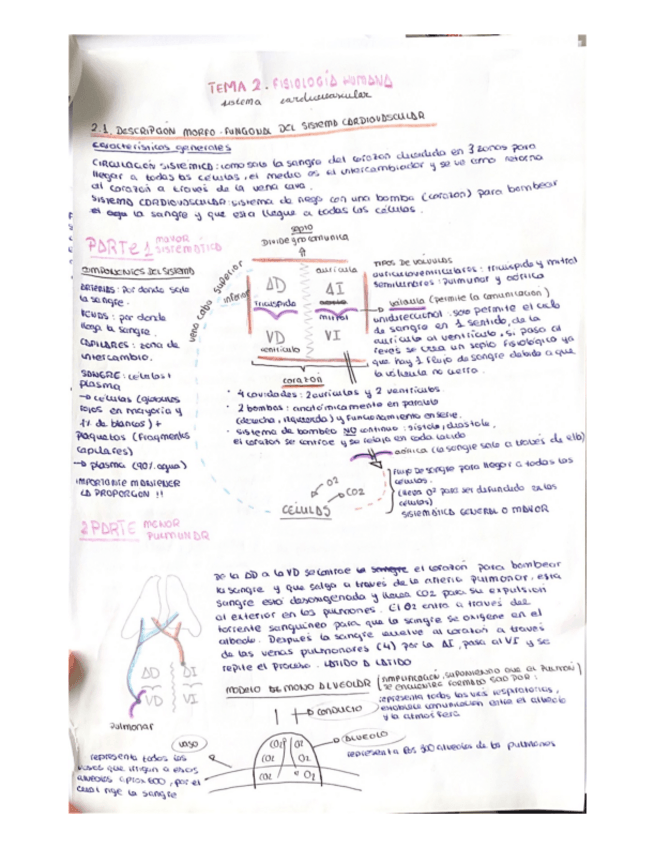 TEMA 2. FISIOLOGÍA HUMANA
sistema cardiovascular
2.1. DESCRIPCIÓN MORFO-FUNCIONAL DEL SISTEMA CARDIOVASCULAR
características generales
CIRCULACIÓN SISTÉMICO: como sale la sangre del corazón dividido en 3 zonas para
llegar a todas las células, el medio es el intercambiador y se ve como retorna
al corazón a través de la vena cava.
SISTEMA CARDIOVASCULAR: sistema de riego con una bomba (corazón) para bombear
la sangre y que esta llegue a todas las células.
PARTE 1 MAYOR SISTEMÁTICO
COMPONENTES DEL SISTEMA
ARTERIAS: Por donde sale
la sangre.
VENAS: por donde
llega la sangre.
CAPILARES: zona de
intercambio.
SANGRE: células +
plasma
→ células (glóbulos
rojos en mayoría y
1% de blancos) +
Plaquetas (fragmentos
capilares)
→ plasma (90% agua)
IMPORTANTE MANTENER
LA PROPORCIÓN !!
septo
DIVIDE y no comunica
vena cava superior
inferior
aurícula
AD
AI
tricúspide
mitral
VD
VI
ventrículo
corazón
TIPOS DE VÁLVULAS
auriculoventriculares: tricúspide y mitral
semilunares: Pulmonar y aórtica
válvula (permite la comunicación)
unidireccional: solo permite el ciclo
de sangre en 1 sentido, de la
aurícula al ventrículo, si pasa al
revés se crea un soplo fisiológico ya
que hay 1 flujo de sangre debido a que
la válvula no cierra.
• 4 cavidades: 2 aurículas y 2 ventrículos.
• 2 bombas: anatómicamente en paralelo
(derecha, izquierda) y funcionamiento en serie.
• sistema de bombeo NO continuo: sístole, diástole.
el corazón se contrae y se relaja en cada latido
aórtica (la sangre sale a través de ella)
flujo de sangre para llegar a todas las
células.
(lleva O2 para ser difundido en las
células)
SISTEMÁTICA GENERAL O MAYOR
O2
CO2
CÉLULAS
2 PARTE MENOR PULMONAR
De la AD a la VD se contrae el corazón para bombear
la sangre y que salga a través de la arteria pulmonar, esta
sangre está desoxigenada y lleva CO2 para su expulsión
al exterior en los pulmones. El O2 entra a través del
torrente sanguíneo para que la sangre se oxigene en el
albeolo. Después la sangre vuelve al corazón a través
de las venas pulmonares (4) por la AI, pasa al VI y se
repite el proceso. LATIDO A LATIDO
AD
AI
VD
VI
Pulmonar
MODELO DE MONO ALVEOLAR
(SIMPLIFICACIÓN, SUPONIENDO QUE EL PULMÓN
SE ENCUENTRE FORMADO SOLO POR:
CONDUCTO
representa todas las vías respiratorias,
comunicación entre el alveolo
y la atmósfera
VASO
representa todos los
vasos que irrigan a esos
alveolos aprox 600, por el
cual rige la sangre
CO2
O2
CO2
O2
CO2
O2
ALVEOLO
representa los 300 alveolos de los pulmones